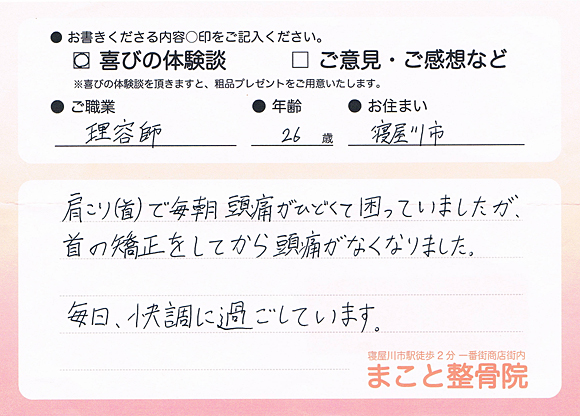 ● お書きくださる内容○印をご記入ください。
☐ 喜びの体験談 ☐ ご意見・ご感想など
※喜びの体験談を頂きますと、粗品プレゼントをご用意いたします。
● ご職業 ● 年齢 ● お住まい
理容師 26 歳 寝屋川市
肩こり(首)で毎朝頭痛がひどくて困っていましたが、
首の矯正をしてから頭痛がなくなりました。
毎日、快調に過ごしています。
寝屋川市駅徒歩2分 一番街商店街内
まこと整骨院